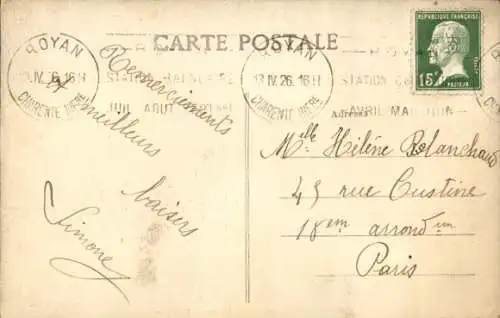 CARTE POSTALE
ROYAN
13 IV. 26. 16H
CHARENTE INFRE
STATION BALNEAIRE
JUIL AOUT
ROYAN
13 IV. 26. 16H
CHARENTE INFRE
STATION
AVRIL MAI JUIN
REPUBLIQUE FRANÇAISE
15c
POSTES
PASTEUR
Remerciements
et meilleurs
baisers
Simone
Adresse
Melle Hélène Blanchaud
45 rue Custine
18em arrondem
Paris